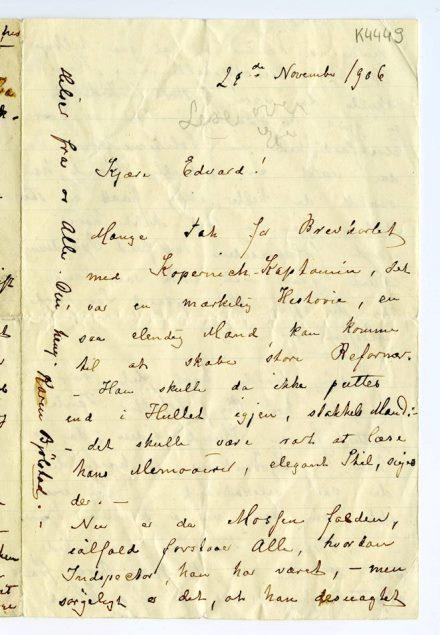 K4449
28de November 1906
Kjære Edvard!
Mange Tak for Brevkortet
med Kopernick-Kaptainin, det
var en mærkelig Historie, en
saa elendig Mand, kan komme
til at skabe store Reformer.
– Han skulde da ikke puttes
ind i Hullet igjen, stakkels Mand; –
– det skulde være rart at læse
hans Memoairer, elegant Stil, siges
der. –
Nu er da Mossin falden,
ialfald forstaar Alle, hvordan
Indspector, han har været, – men
sørgeligt er det, at han desuagtet
Hilser fra os Alle. Din heng. Karen Bjølstad. –